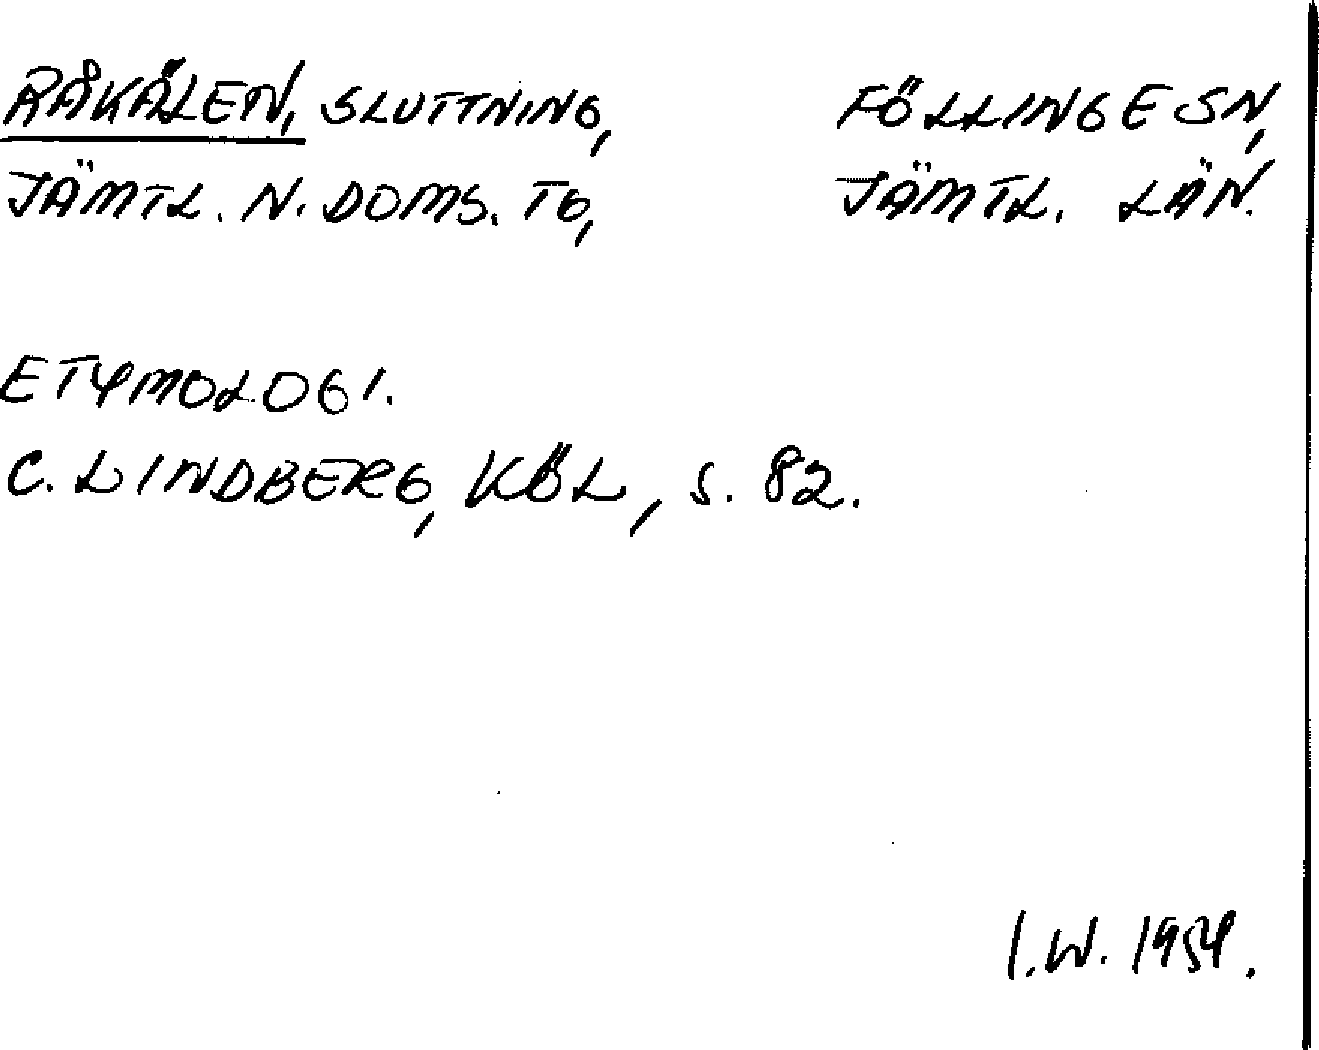 RÅKÄLEN, SLUTTNING, FÖLLINGE SN,
JÄMTL. N. DOMS. TG, JÄMTL. LÄN.
ETYMOLOGI.
C. LINDBERG, KÖL, S. 82.
I.W. 1954.